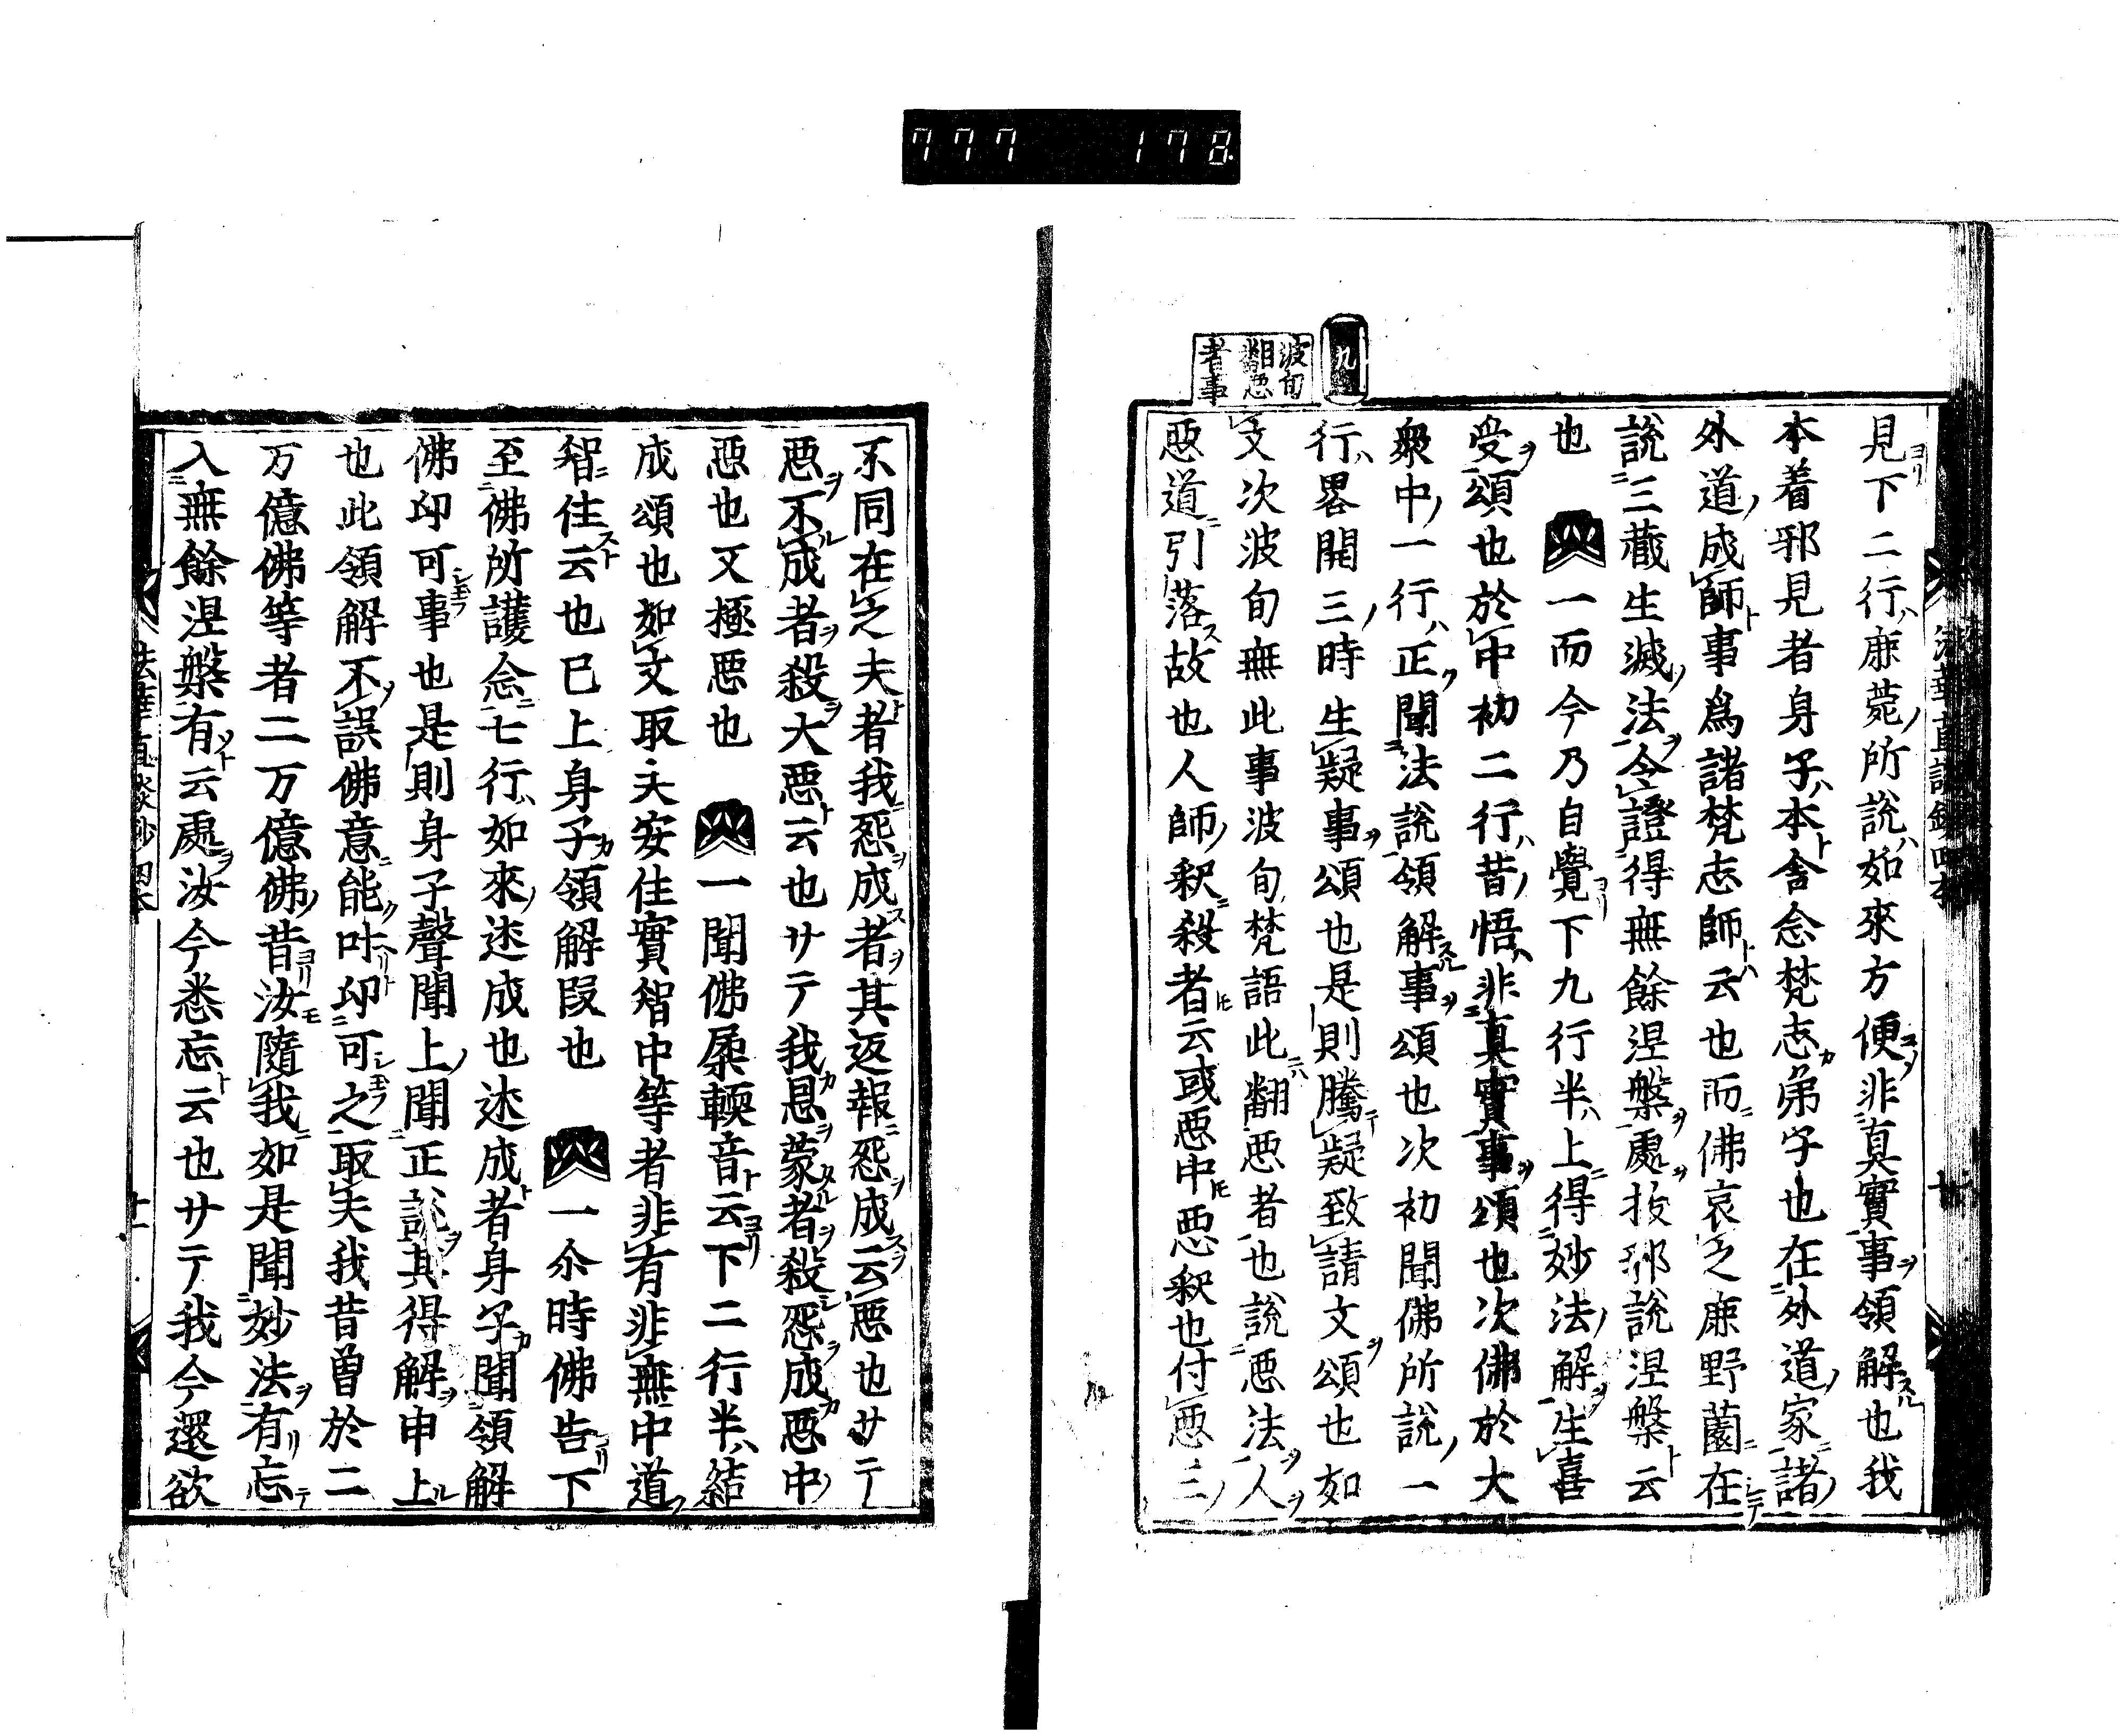 777 178
九
波旬
翻悪
者事
見ヨリ下二行ハ鹿菀ノ所説ハ如來方便ニ乄非真實ニ事ヲ領解スル也我
本着邪見者身子ハ本ト舎念梵志カ弟子也在外道ノ家ニ諸ノ
外道ノ成師ト事爲諸梵志師トハ云也而ニ佛哀之鹿野薗ニ在シテ
説三藏生滅ノ法ヲ令證得無餘涅槃ヲ處ヲ抜邪説涅槃ト云
也 一而今乃自覺ヨリ下九行半ハ上ニ得妙法ノ解ヲ生喜
受ヲ頌也於中初二行ハ昔ノ悟ハ非真實ニ事ヲ頌也次佛於大
衆中ノ一行ハ正ク聞法説領解スル事ヲ頌也次初聞佛所説ノ一
行ハ畧開三ノ時生疑事ヲ頌也是則騰疑テ致請文ヲ頌也如
文次波旬無此事波旬ハ梵語此ニハ翻悪者也説悪法ヲ人ヲ
悪道ニ引落ス故也人師ノ釈ニ殺者トモ云或悪中トモ悪釈也付悪三ノ
不同在之夫ト者我ニ怨ヲ成ス者ヲ其返報ニ怨ヲ成スヲ云悪也サテ
悪ヲ不成者ヲ殺ヲ大悪ト云也サテ我カ恩ヲ蒙タル者ヲ殺シ怨ヲ成カ悪中ノ
悪也又極悪也 一聞佛柔軟音ト云ヨリ下二行半ハ結
成頌也如文取夫安住實智中等者非有非無中道ノ
智ニ住スト云也已上身子カ領解段也 一尒時佛告ヨリ下
至佛所護念ニ七行ハ如來ノ述成也述成ト者身子カ聞領解
佛印可シ玉フ事也是則身子聲聞上ノ聞正説ヲ其得解ヲ申上ル
也此領解不誤ヲ佛意ニ能ク叶ヘリト印可シ玉フ之取夫我昔曽於二
万億佛等者二万億佛ノ昔ヨリ汝モ隨我ニ如是聞妙法ヲ有リ忘テ
入無餘涅槃ニ有ツト云處ヲ汝今悉忘ト云也サテ我今還欲
法華直談鈔四本
十一